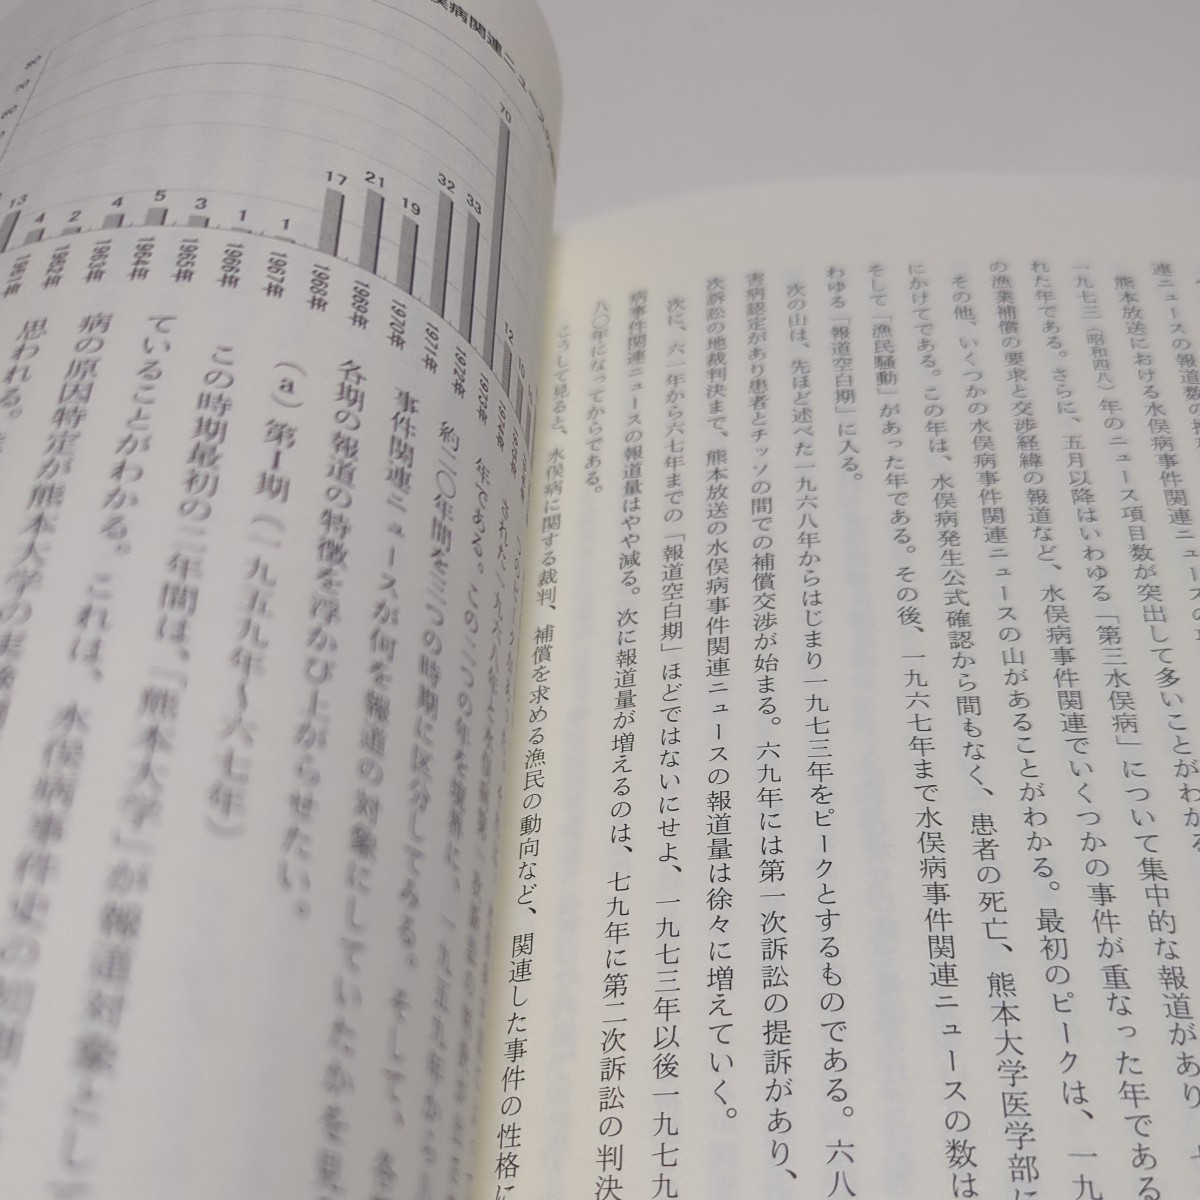 連ニュースの報道数の
熊本放送における水俣病事件関連ニュースの
一九七三（昭和四八）年のニュース項目数が突出して多いことがわかる。
れた年である。さらに、五月以降はいわゆる「第三水俣病」について集中的な報道があり、
の漁業補償の要求と交渉経緯の報道など、水俣病事件関連でいくつかの事件が重なった年である
その他、いくつかの水俣病事件関連ニュースの山があることがわかる。最初のピークは、一九
にかけてである。この年は、水俣病発生公式確認から間もなく、患者の死亡、熊本大学医学部に
そして「漁民騒動」があった年である。その後、一九六七年まで水俣病事件関連ニュースの数は
わゆる「報道空白期」に入る。
次の山は、先ほど述べた一九六八年からはじまり一九七三年をピークとするものである。六八
害病認定があり患者とチッソの間での補償交渉が始まる。六九年には第一次訴訟の提訴があり、
次訴訟の地裁判決まで、熊本放送の水俣病事件関連ニュースの報道量は徐々に増えていく。
次に、六一年から六七年までの「報道空白期」ほどではないにせよ、一九七三年以後一九七九
病事件関連ニュースの報道量はやや減る。次に報道量が増えるのは、七九年に第二次訴訟の判決
八〇年になってからである。
こうして見ると、水俣病に関する裁判、補償を求める漁民の動向など、関連した事件の性格に
病関連ニュース
13 4 2 4 5 3 1 1 17 21 19 32 33 70 12 10
1961年 1962年 1963年 1964年 1965年 1966年 1967年 1968年 1969年 1970年 1971年 1972年 1973年 1974年 1975年
年である。この二つの年を境界に、一九五九年から
約二〇年間を三つの時期に区分してみる。そして、各
事件関連ニュースが何を報道の対象にしていたかを見
各期の報道の特徴を浮かび上がらせたい。
（a）第Ⅰ期（一九五九年〜六七年）
この時期最初の二年間は、「熊本大学」が報道対象として
ていることがわかる。これは、水俣病事件史の初期
病の原因特定が熊本大学の実験
思われる。